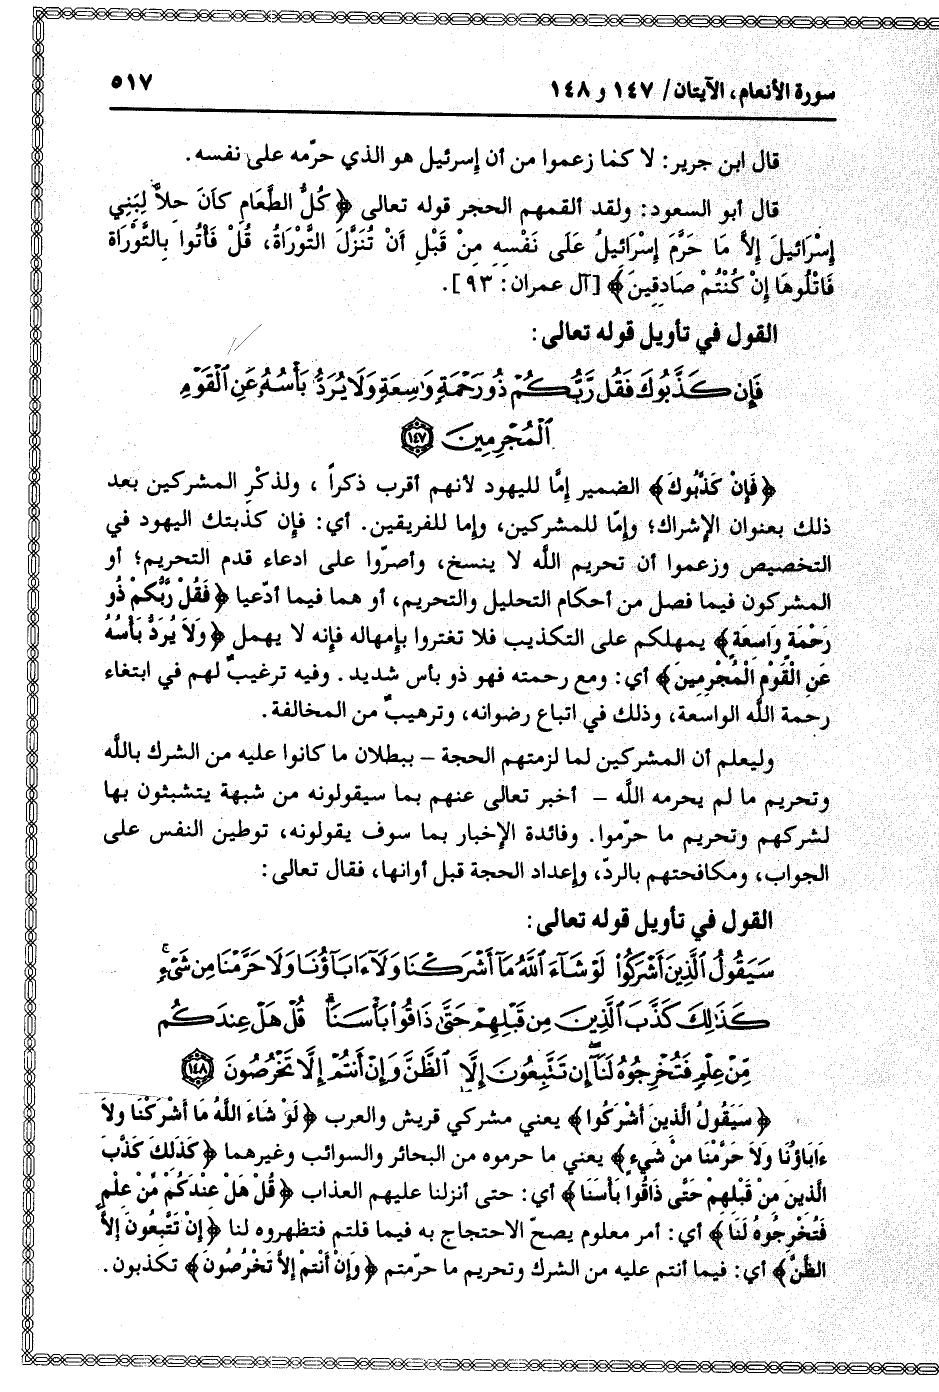 سورة الأنعام، الآيتان/ ١٤٧ و ١٤٨
٥١٧
قال ابن جرير: لا كما زعموا من أن إسرئيل هو الذي حرّمه على نفسه.
قال أبو السعود: ولقد ألقمهم الحجر قوله تعالى ﴿كُلُّ الطَّعَامِ كَانَ حِلاًّ لِبَنِي
إِسْرَائيلَ إِلاَّ مَا حَرَّمَ إِسْرَائيلُ عَلَى نَفْسِهِ مِنْ قَبْلِ أَنْ تُنَزَّلَ التَّوْرَاةُ، قُلْ فَأْتُوا بِالتَّوْرَاةِ
فَاتْلُوهَا إِنْ كُنْتُمْ صَادِقِينَ﴾ [آل عمران: ٩٣].
القول في تأويل قوله تعالى:
فَإِن كَذَّبُوكَ فَقُل رَّبُّكُمْ ذُو رَحْمَةٍ وَاسِعَةٍ وَلَا يُرَدُّ بَأْسُهُ عَنِ الْقَوْمِ
الْمُجْرِمِينَ ١٤٧
﴿فَإِنْ كَذَّبُوكَ﴾ الضمير إمَّا لليهود لأنهم أقرب ذكراً، ولذكْرِ المشركين بعد
ذلك بعنوان الإشراك؛ وإمّا للمشركين، وإما للفريقين. أي: فإن كذبتك اليهود في
التخصيص وزعموا أن تحريم الله لا ينسخ، وأصرّوا على ادعاء قدم التحريم؛ أو
المشركون فيما فصل من أحكام التحليل والتحريم، أو هما فيما أدّعيا ﴿فَقُلْ رَّبُّكُمْ ذُو
رَحْمَةٍ وَاسِعَةٍ﴾ يمهلكم على التكذيب فلا تغتروا بإمهاله فإنه لا يهمل ﴿وَلاَ يُرَدُّ بَأْسُهُ
عَنِ الْقَوْمِ الْمُجْرِمِينَ﴾ أي: ومع رحمته فهو ذو بأس شديد. وفيه ترغيبٌ لهم في ابتغاء
رحمة الله الواسعة، وذلك في اتباع رضوانه، وترهيبٌ من المخالفة.
وليعلم أن المشركين لما لزمتهم الحجة – ببطلان ما كانوا عليه من الشرك بالله
وتحريم ما لم يحرمه الله – أخبر تعالى عنهم بما سيقولونه من شبهة يتشبثون بها
لشركهم وتحريم ما حرّموا. وفائدة الإخبار بما سوف يقولونه، توطين النفس على
الجواب، ومكافحتهم بالردّ، وإعداد الحجة قبل أوانها، فقال تعالى:
القول في تأويل قوله تعالى:
سَيَقُولُ الَّذِينَ أَشْرَكُوا لَوْ شَاءَ اللَّهُ مَا أَشْرَكْنَا وَلَا ءَابَآؤُنَا وَلَا حَرَّمْنَا مِن شَيْءٍ
كَذَٰلِكَ كَذَّبَ الَّذِينَ مِن قَبْلِهِمْ حَتَّىٰ ذَاقُوا بَأْسَنَا ۗ قُلْ هَلْ عِندَكُم
مِّنْ عِلْمٍ فَتُخْرِجُوهُ لَنَا ۖ إِن تَتَّبِعُونَ إِلَّا الظَّنَّ وَإِنْ أَنتُمْ إِلَّا تَخْرُصُونَ ١٤٨
﴿سَيَقُولُ الَّذِينَ أَشْرَكُوا﴾ يعني مشركي قريش والعرب ﴿لَوْ شَاءَ اللَّهُ مَا أَشْرَكْنَا وَلاَ
ءَابَاؤُنَا وَلاَ حَرَّمْنَا مِنْ شَيءٍ﴾ يعني ما حرموه من البحائر والسوائب وغيرهما ﴿كَذَلِكَ كَذَّبَ
الَّذِينَ مِنْ قَبْلِهِمْ حَتَّى ذَاقُوا بَأْسَنَا﴾ أي: حتى أنزلنا عليهم العذاب ﴿قُلْ هَلْ عِنْدَكُمْ مِّنْ عِلْمٍ
فَتُخْرِجُوهُ لَنَا﴾ أي: أمر معلوم يصحّ الاحتجاج به فيما قلتم فتظهروه لنا ﴿إِنْ تَتَّبِعُونَ إِلاَّ
الظَّنَّ﴾ أي: فيما أنتم عليه من الشرك وتحريم ما حرّمتم ﴿وَإِنْ أَنْتُمْ إِلاَّ تَخْرُصُونَ﴾ تكذبون.